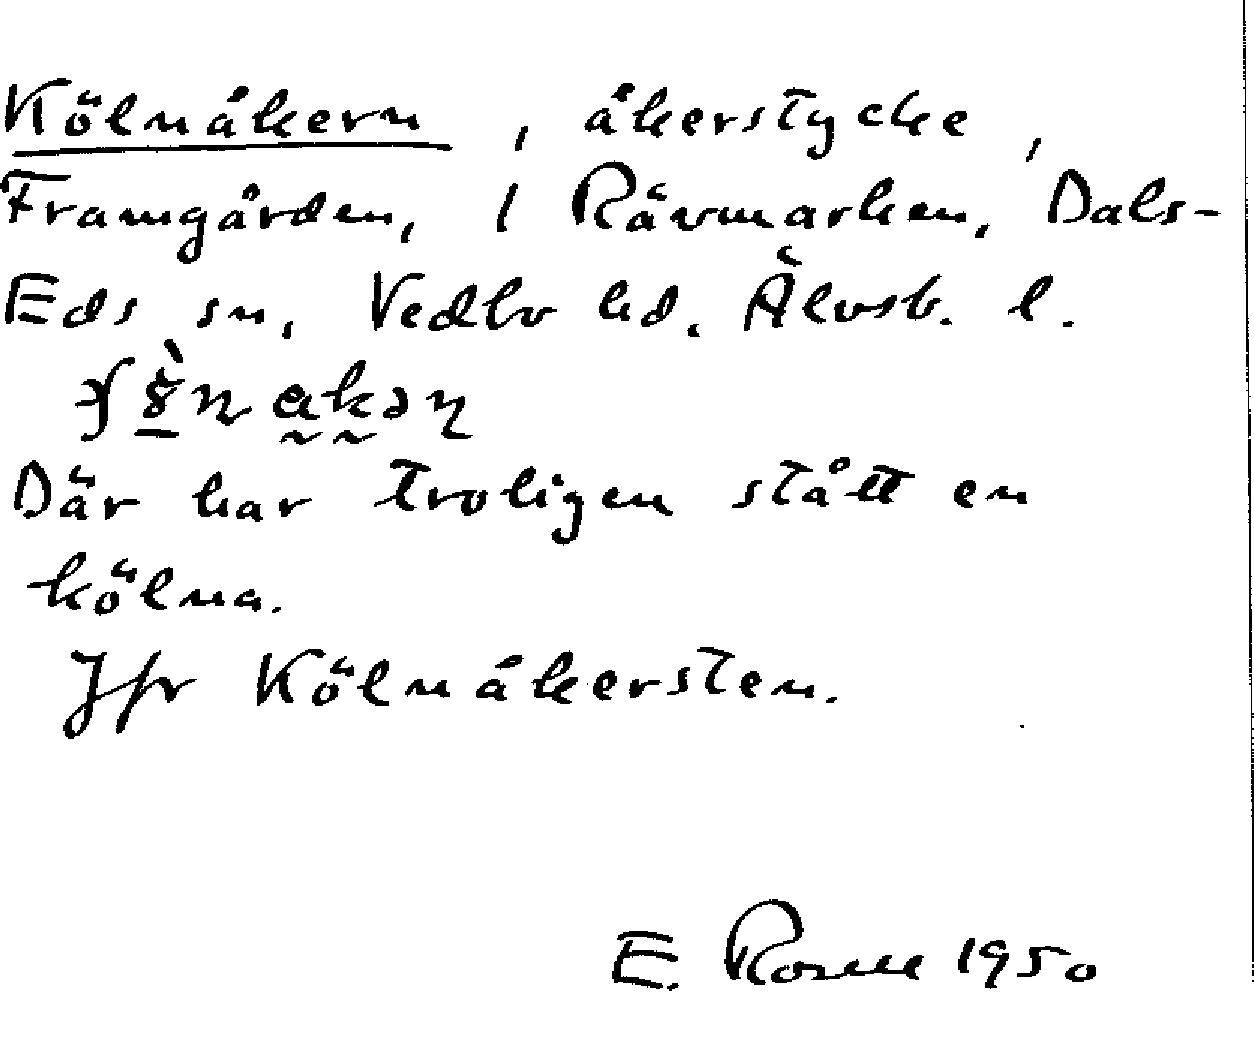 Kölnåkern, åkerstycke,
Framgården, 1 Rävmarken, Dals-
Eds sn, Vedbo hd, Älvsb. l.
Där har troligen stått en
kölna.
Jfr Kölnåkersten.
E. Rosell 1950